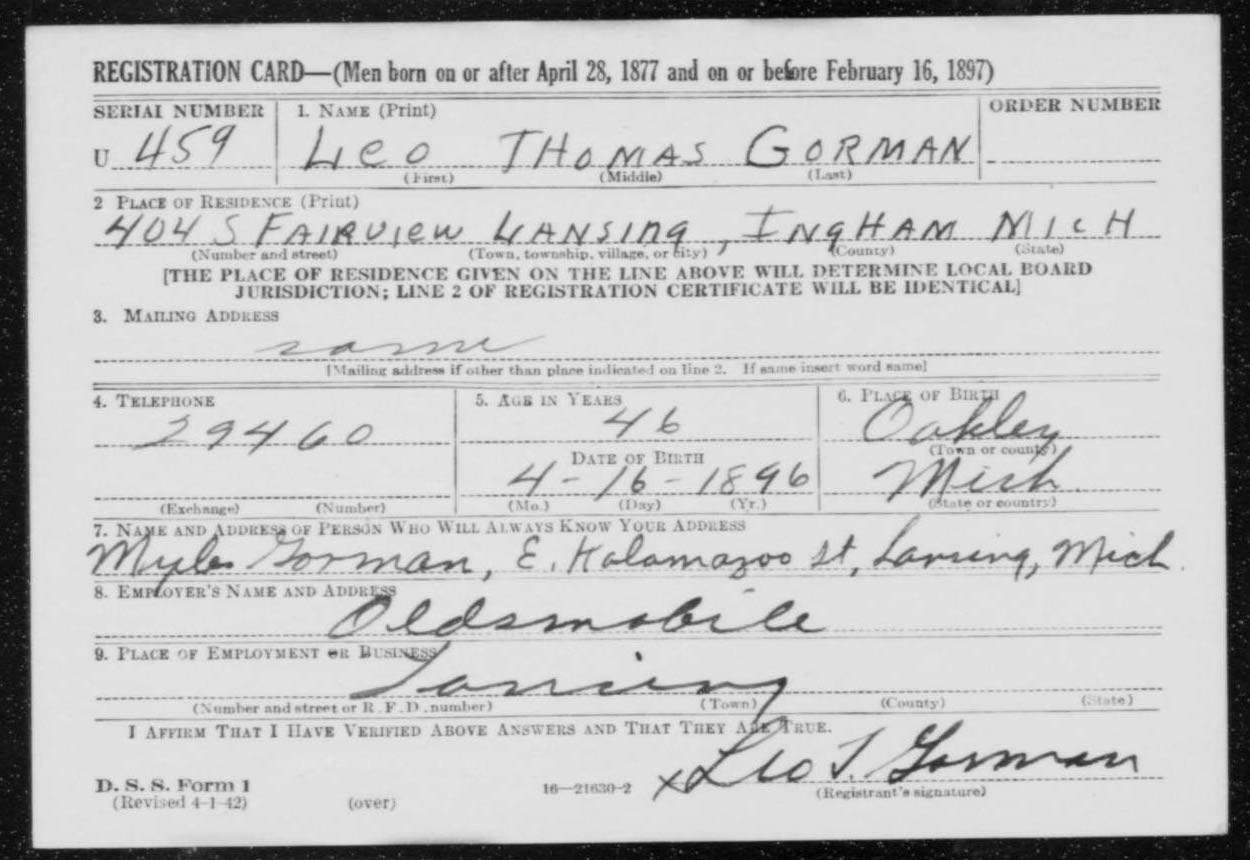 REGISTRATION CARD—(Men born on or after April 28, 1877 and on or before February 16, 1897)
SERIAL NUMBER 1. NAME (Print) ORDER NUMBER
U 459 LEO THOMAS GORMAN
(First) (Middle) (Last)
2 PLACE OF RESIDENCE (Print)
404 S FAIRVIEW LANSING, INGHAM MICH
(Number and street) (Town, township, village, or city) (County) (State)
[THE PLACE OF RESIDENCE GIVEN ON THE LINE ABOVE WILL DETERMINE LOCAL BOARD
JURISDICTION; LINE 2 OF REGISTRATION CERTIFICATE WILL BE IDENTICAL]
3. MAILING ADDRESS
same
[Mailing address if other than place indicated on line 2. If same insert word same]
4. TELEPHONE 5. AGE IN YEARS 6. PLACE OF BIRTH
29460 46 Oakley
DATE OF BIRTH (Town or county)
4-16-1896 Mich.
(Exchange) (Number) (Mo.) (Day) (Yr.) (State or country)
7. NAME AND ADDRESS OF PERSON WHO WILL ALWAYS KNOW YOUR ADDRESS
Myles Gorman, E. Kalamazoo St, Lansing, Mich.
8. EMPLOYER'S NAME AND ADDRESS
Oldsmobile
9. PLACE OF EMPLOYMENT OR BUSINESS
Lansing
(Number and street or R. F. D. number) (Town) (County) (State)
I AFFIRM THAT I HAVE VERIFIED ABOVE ANSWERS AND THAT THEY ARE TRUE.
x Leo T. Gorman
D. S. S. Form 1 16—21630-2 (Registrant's signature)
(Revised 4-1-42) (over)